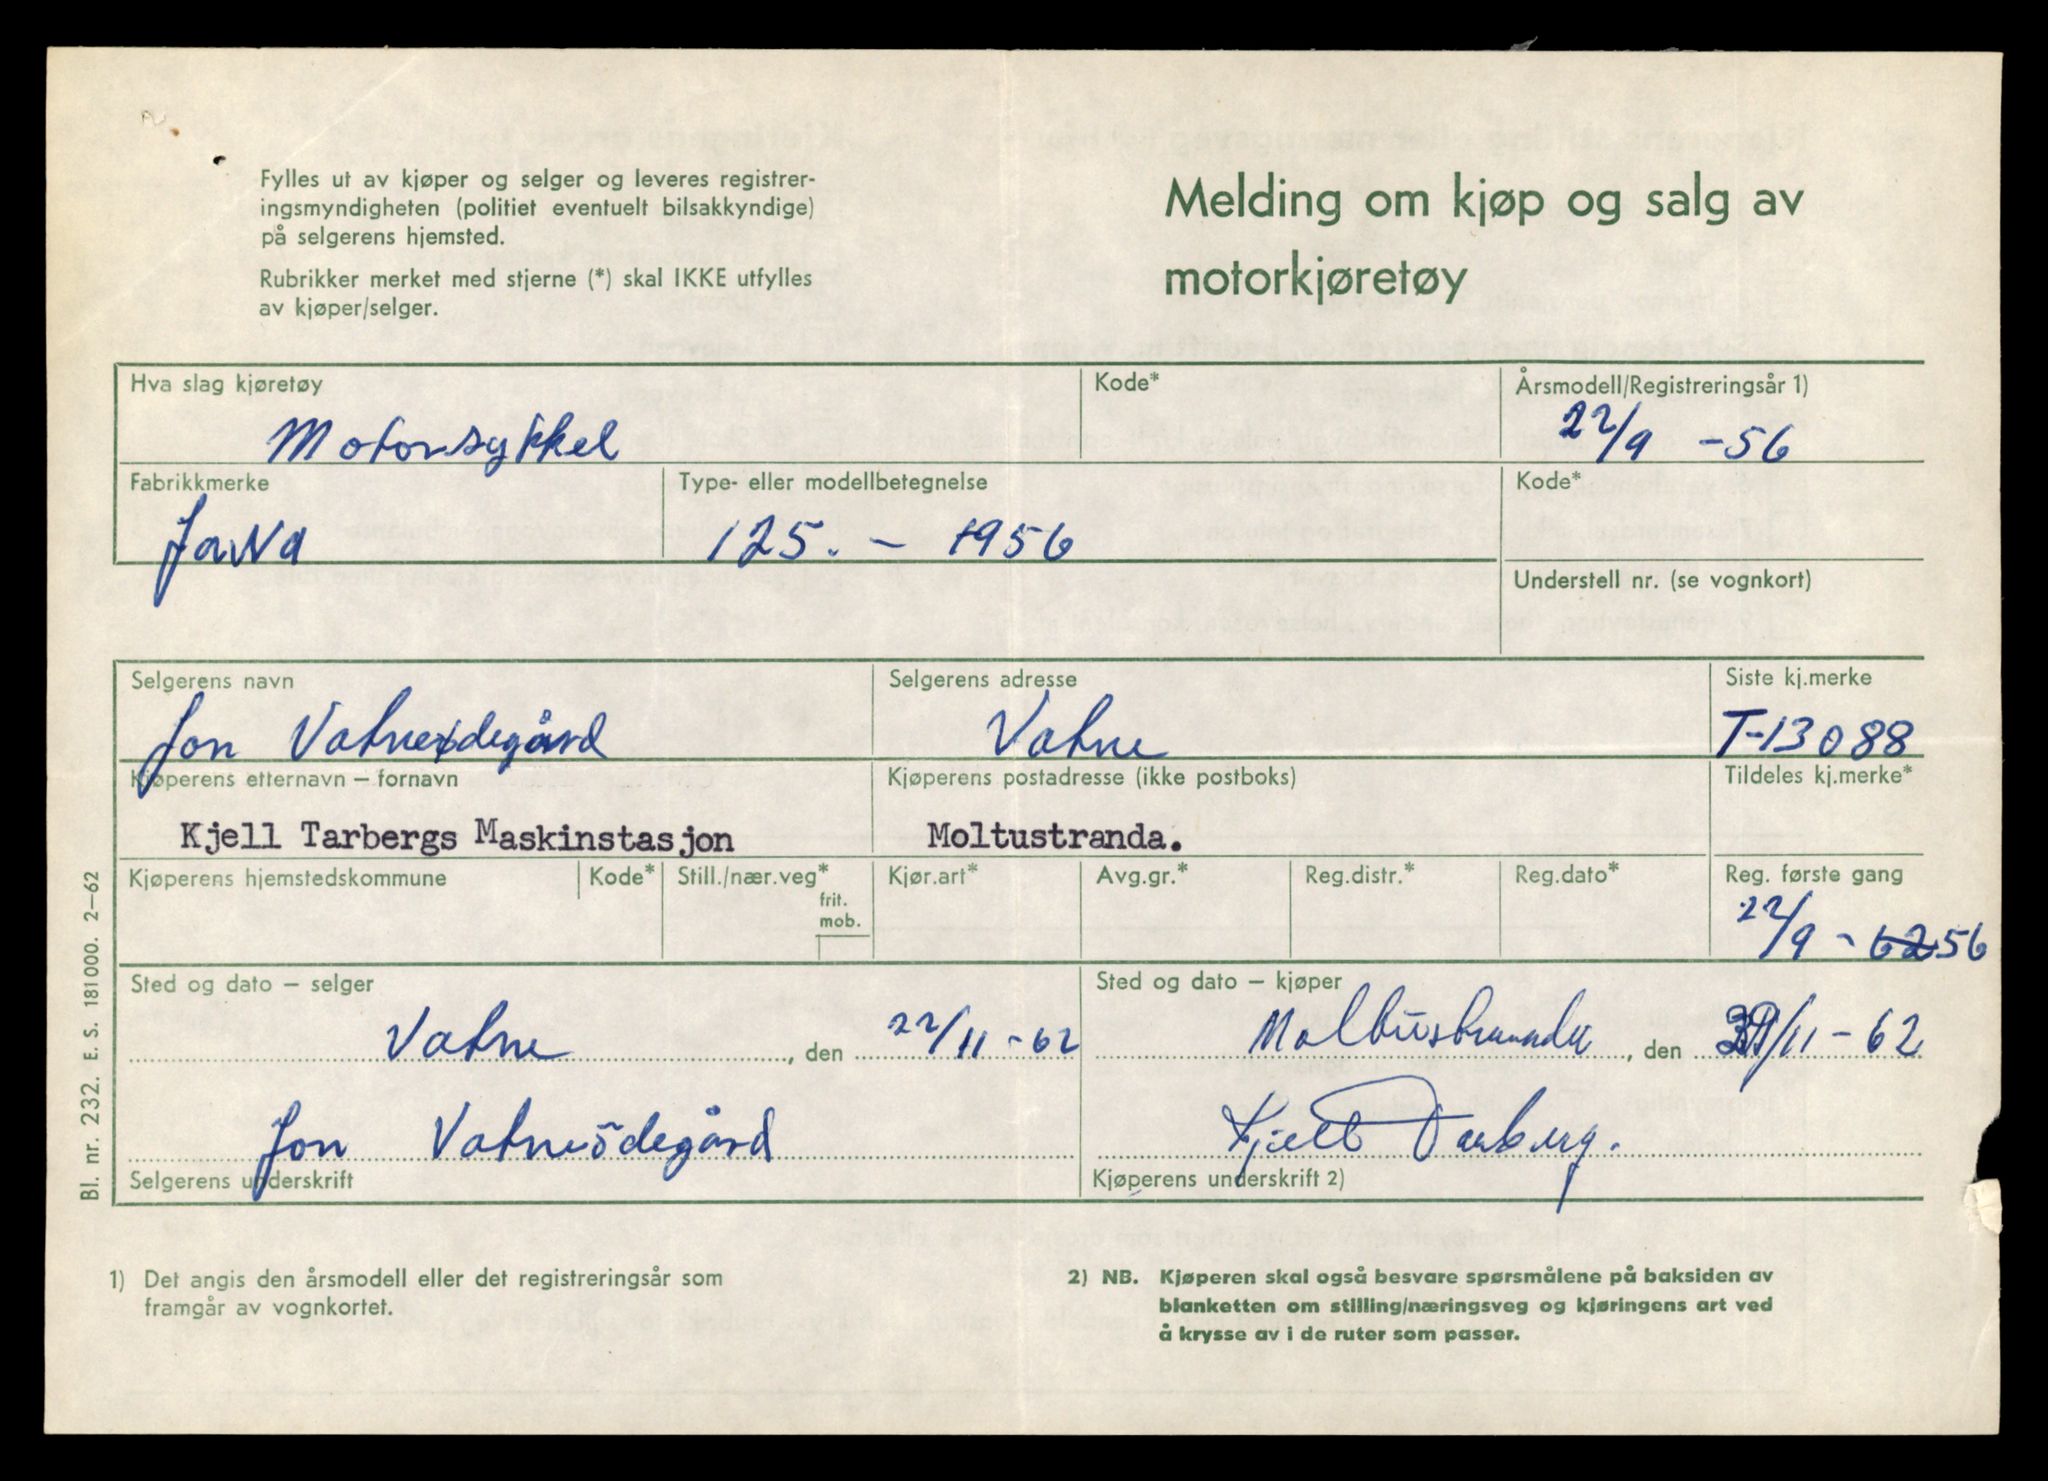 Fylles ut av kjøper og selger og leveres registrer-
ingsmyndigheten (politiet eventuelt bilsakkyndige)
på selgerens hjemsted.
Rubrikker merket med stjerne (*) skal IKKE utfylles
av kjøper/selger.
Melding om kjøp og salg av
motorkjøretøy
Hva slag kjøretøy
Motorsykkel
Kode*
Årsmodell/Registreringsår 1)
22/9 - 56
Fabrikkmerke
Jawa
Type- eller modellbetegnelse
125. - 1956
Kode*
Understell nr. (se vognkort)
Selgerens navn
Jon Vatneødegård
Selgerens adresse
Vatne
Siste kj.merke
T-13088
Kjøperens etternavn – fornavn
Kjell Tarbergs Maskinstasjon
Kjøperens postadresse (ikke postboks)
Moltustranda.
Tildeles kj.merke*
Kjøperens hjemstedskommune
Kode*
Still./nær.veg*
frit.
mob.
Kjør.art*
Avg.gr.*
Reg.distr.*
Reg.dato*
Reg. første gang
22/9 - 62 56
Sted og dato – selger
Vatne, den 22/11 - 62
Sted og dato – kjøper
Moltustranda, den /11 - 62
Jon Vatneödegård
Selgerens underskrift
Kjell Tarberg.
Kjøperens underskrift 2)
Bl. nr. 232. E. S. 181000. 2–62
1) Det angis den årsmodell eller det registreringsår som
framgår av vognkortet.
2) NB. Kjøperen skal også besvare spørsmålene på baksiden av
blanketten om stilling/næringsveg og kjøringens art ved
å krysse av i de ruter som passer.